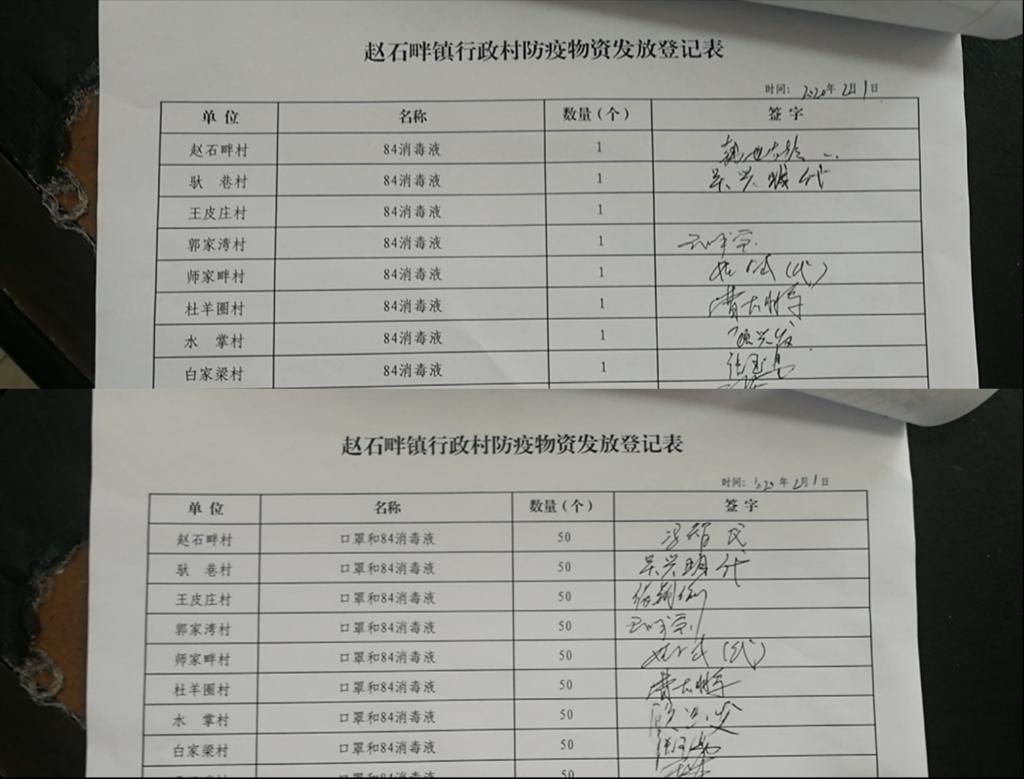 赵石畔镇行政村防疫物资发放登记表
时间: 2020年2月1日
单 位 名称 数量（个） 签 字
赵石畔村 84消毒液 1
驮 巷村 84消毒液 1 吴兴明代
王皮庄村 84消毒液 1
郭家湾村 84消毒液 1
师家畔村 84消毒液 1 （代）
杜羊圈村 84消毒液 1
水 掌村 84消毒液 1
白家梁村 84消毒液 1
赵石畔镇行政村防疫物资发放登记表
时间: 2020年2月1日
单 位 名称 数量（个） 签 字
赵石畔村 口罩和84消毒液 50 冯智民
驮 巷村 口罩和84消毒液 50 吴兴明代
王皮庄村 口罩和84消毒液 50
郭家湾村 口罩和84消毒液 50
师家畔村 口罩和84消毒液 50 （代）
杜羊圈村 口罩和84消毒液 50
水 掌村 口罩和84消毒液 50
白家梁村 口罩和84消毒液 50
口罩和84消毒液 50